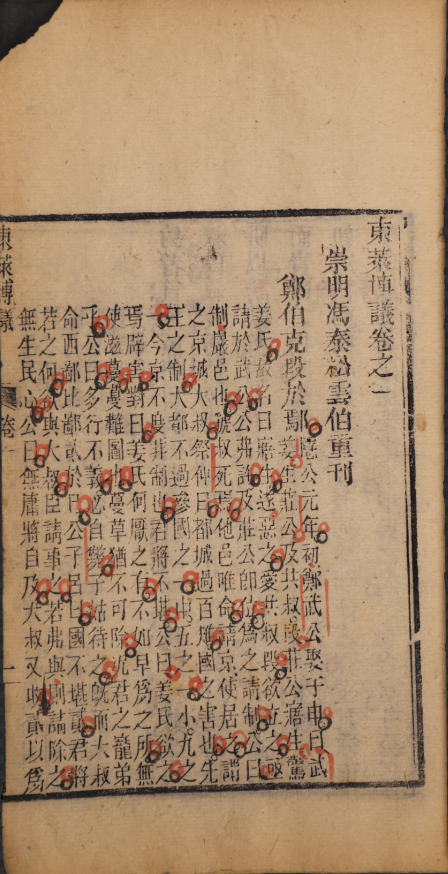 東萊博議卷之一
崇明馮泰松雲伯重刊
鄭伯克段於鄢
隱公元年初鄭武公娶于申曰武
姜生莊公及共叔段莊公寤生驚
姜氏故名曰寤生遂惡之愛共叔段欲立之亟
請於武公公弗許及莊公即位為之請制公曰
制巖邑也虢叔死焉他邑唯命請京使居之謂
之京城大叔祭仲曰都城過百雉國之害也先
王之制大都不過參國之一中五之一小九之
一今京不度非制也君將不堪公曰姜氏欲之
焉辟害對曰姜氏何厭之有不如早為之所無
使滋蔓蔓難圖也蔓草猶不可除況君之寵弟
乎公曰多行不義必自斃子姑待之既而大叔
命西鄙北鄙貳於己公子呂曰國不堪貳君將
若之何欲與大叔臣請事之若弗與則請除之
無生民心公曰無庸將自及大叔又收貳以為
東萊博議
卷一
一